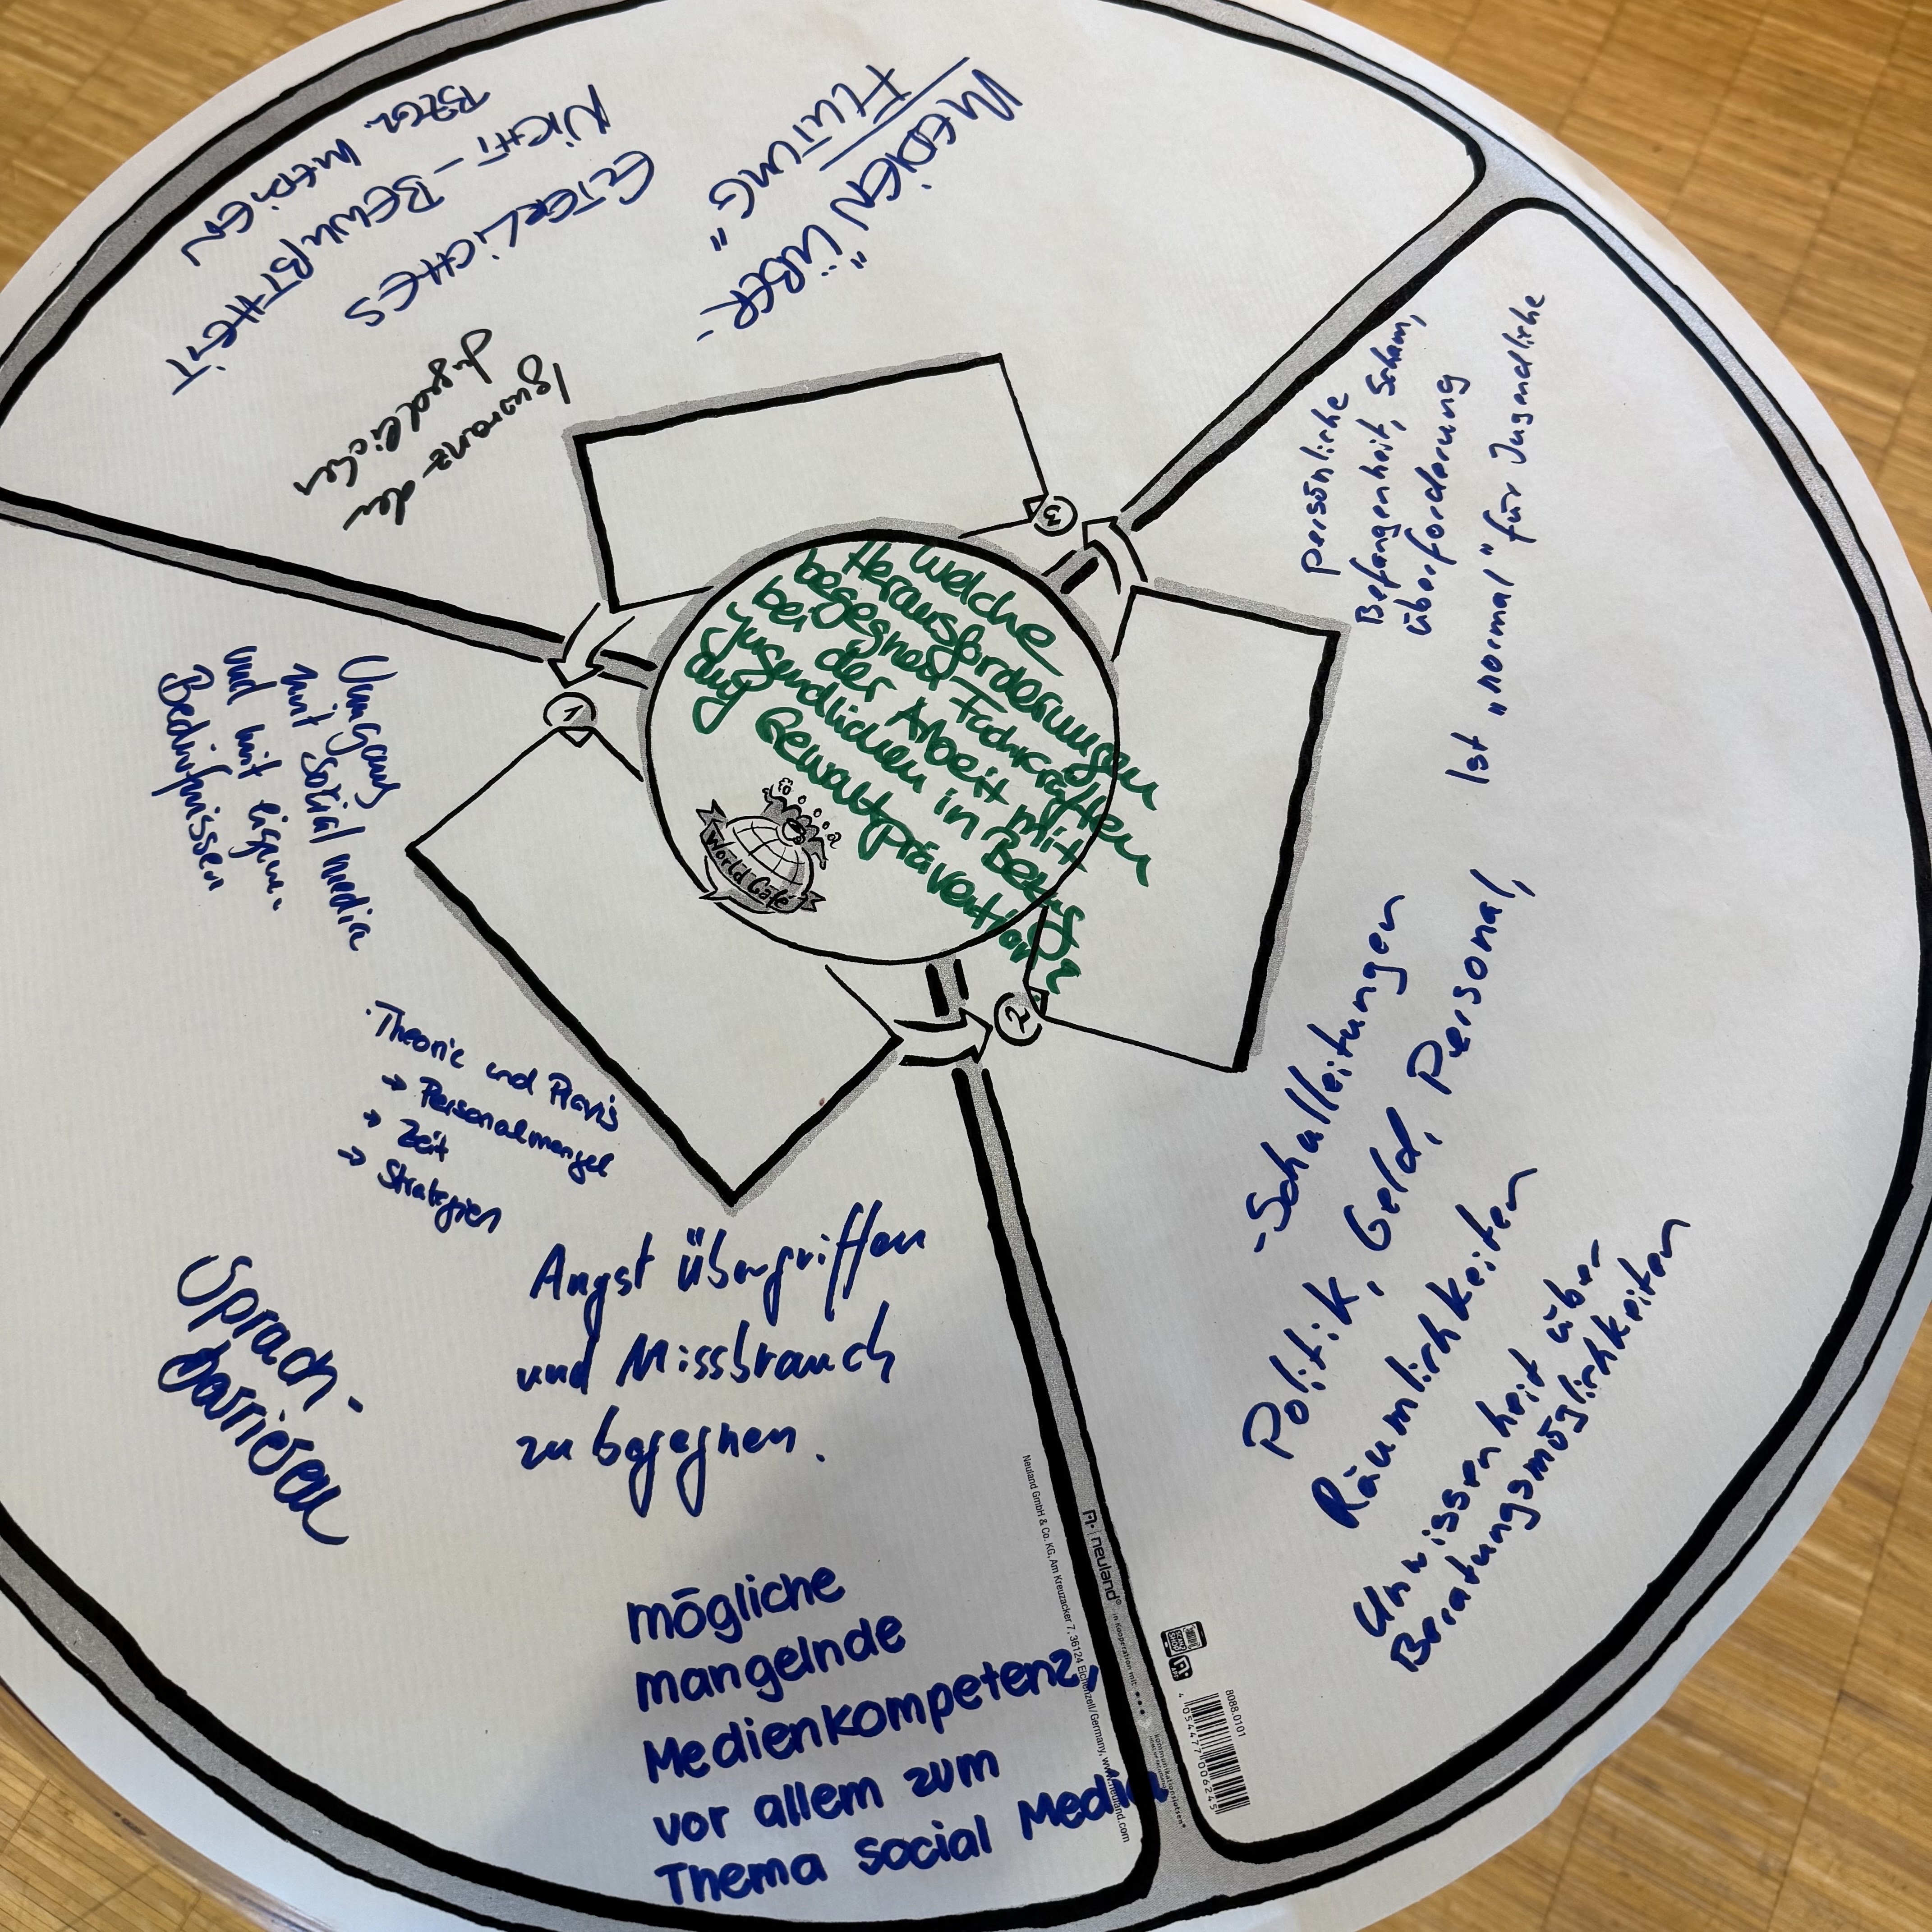 Welche
Herausforderungen
begegnen Fachkräften
bei der Arbeit mit
Jugendlichen in Bezug
auf Gewaltprävention?
World Café
1
Umgang
mit social media
und mit eigenen
Bedürfnissen
· Theorie und Praxis
→ Personalmangel
→ Zeit
→ Strategien
Sprach-
barrieren
Angst übergriffen
und Missbrauch
zu begegnen.
mögliche
mangelnde
Medienkompetenz,
vor allem zum
Thema social Media
2
persönliche
Befangenheit, Scham,
überforderung
Ist „normal" für Jugendliche
- Schulleitungen
Politik, Geld, Personal,
Räumlichkeiten
Unwissenheit über
Beratungsmöglichkeiten
3
MEDIEN „ÜBER-
FLUTUNG"
ELTERLICHES
NICHT-BEWUßTHEIT
BZGL. MEDIEN
Ignoranz der
Jugendlichen
Neuland GmbH & Co. KG, Am Kreuzacker 7, 36124 Eichenzell/Germany, www.neuland.com
neuland®
in Kooperation mit:
kommunikationslotsen®
8088.0101
4 054477 006245